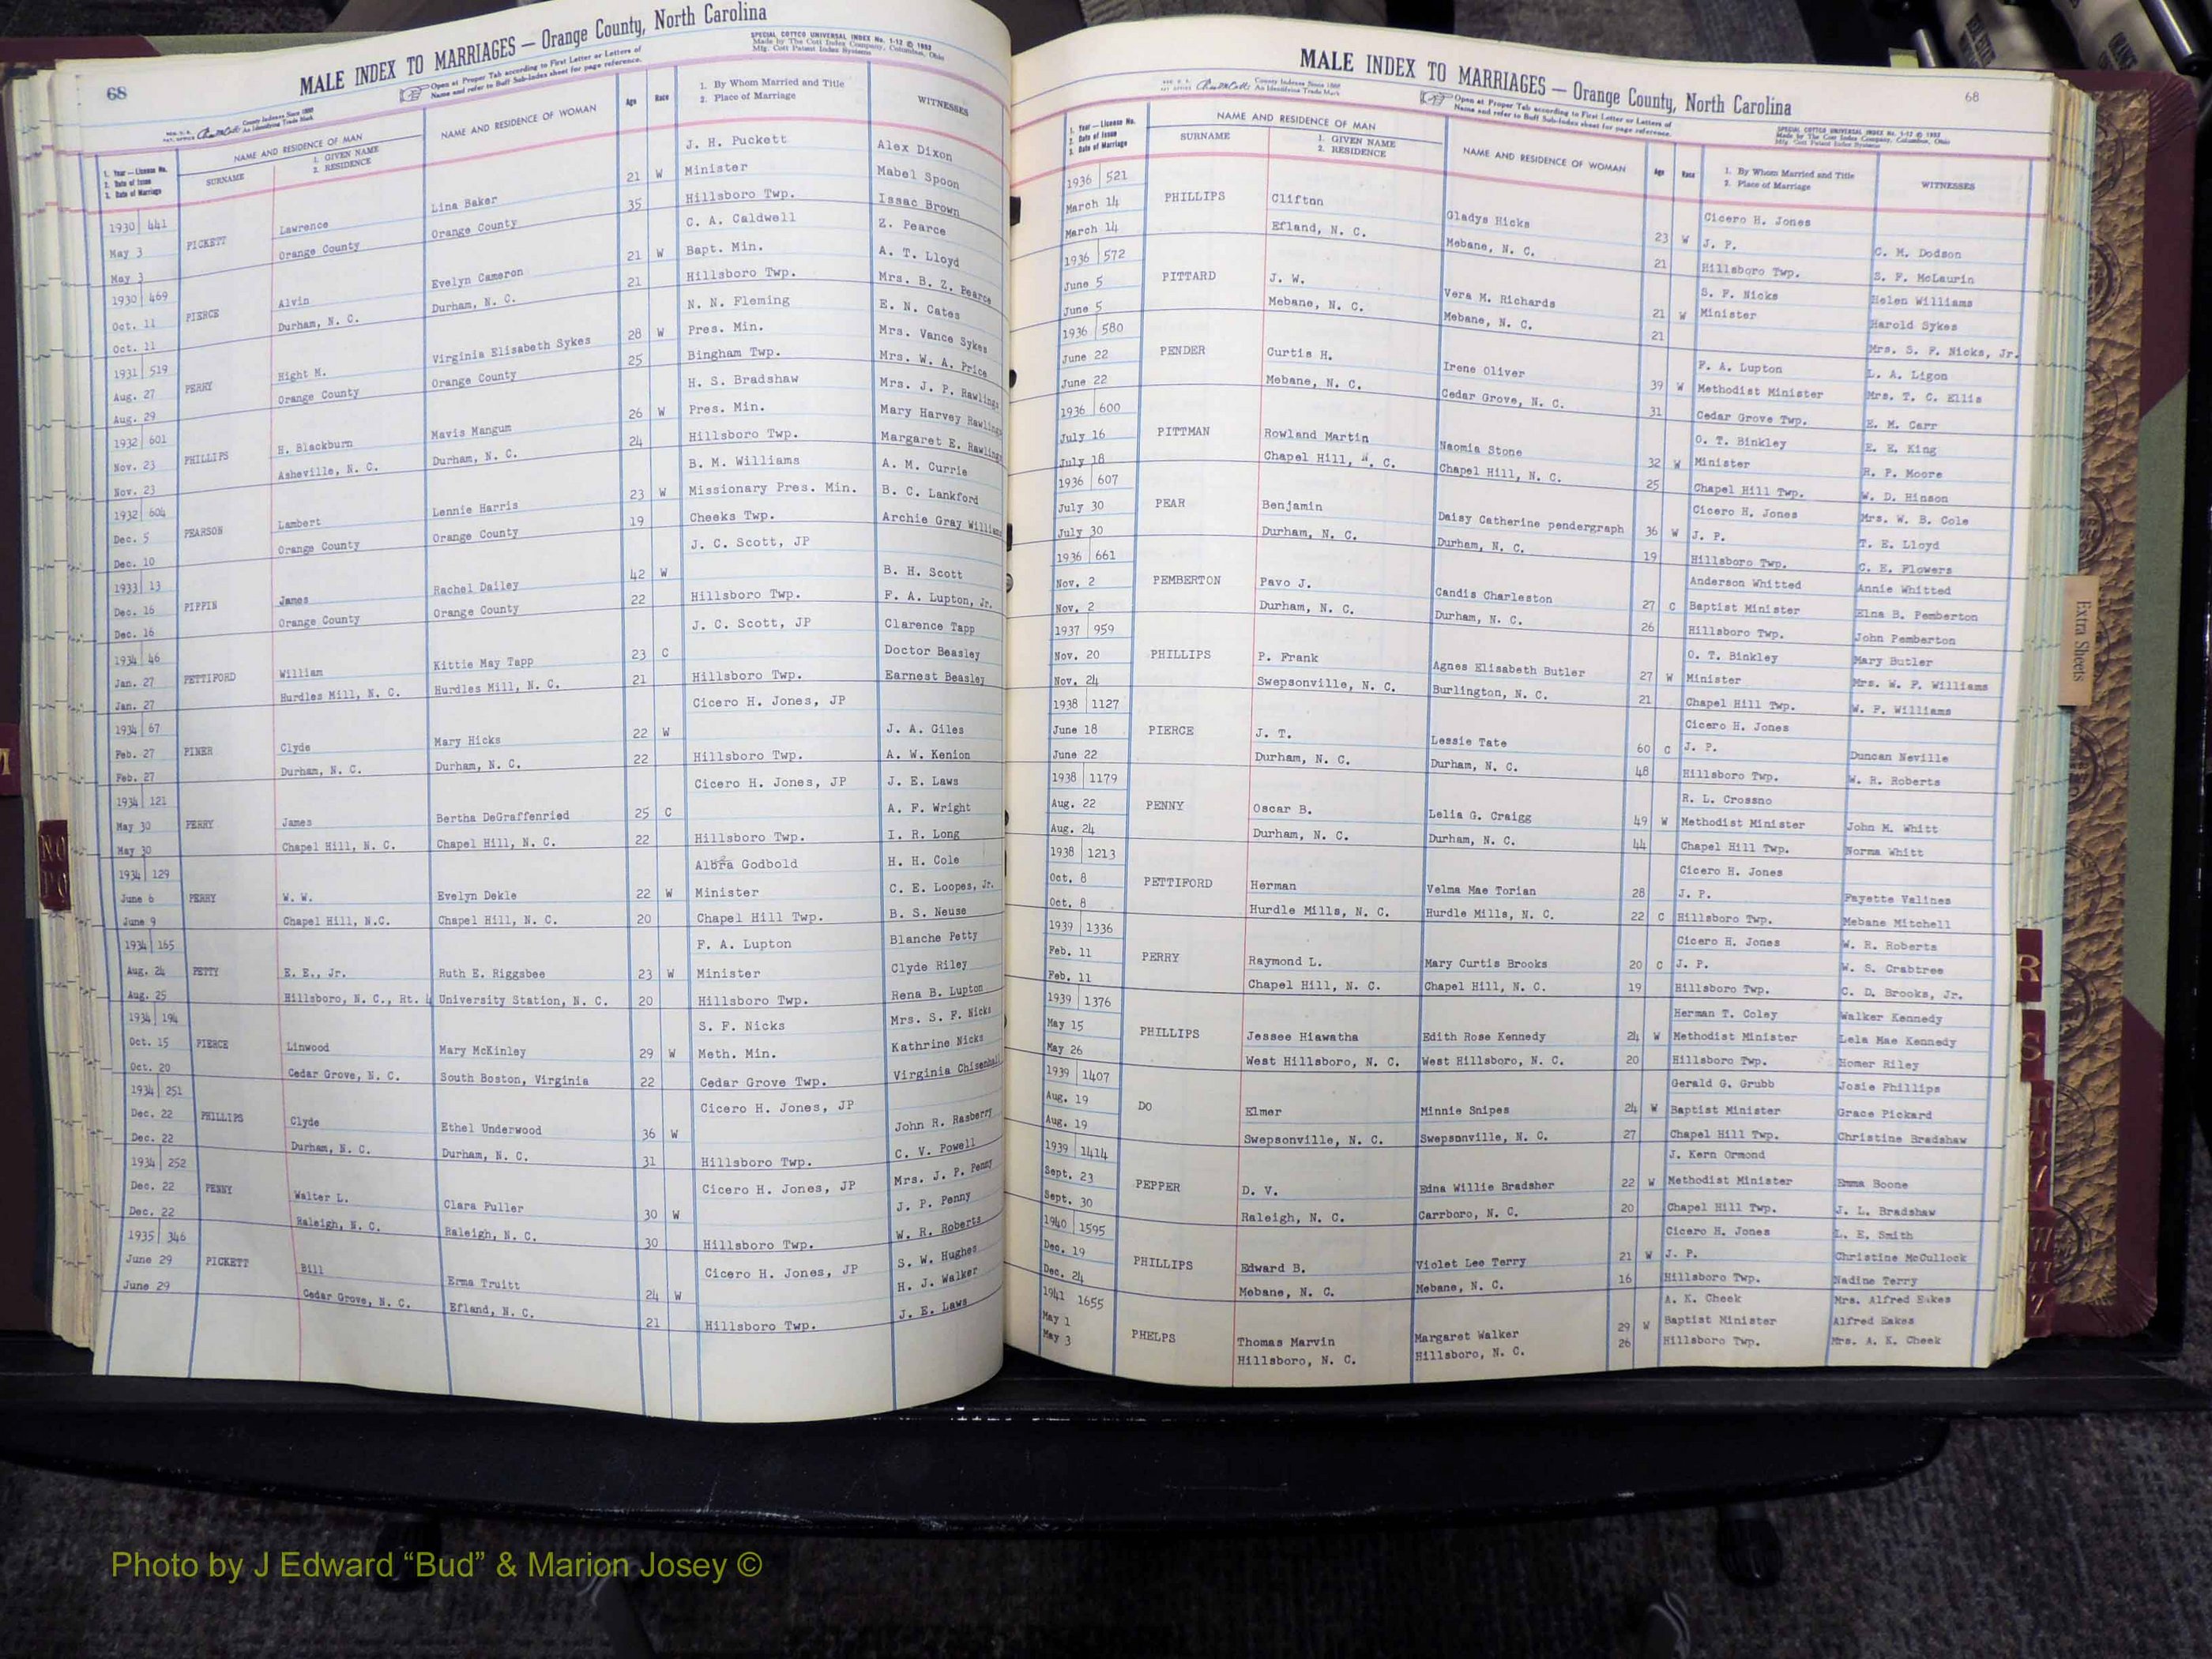 68
MALE INDEX TO MARRIAGES — Orange County, North Carolina
Open at Proper Tab according to First Letter or Letters of
Name and refer to Buff Sub-Index sheet for page reference.
SPECIAL COTTCO UNIVERSAL INDEX No. 1-12 © 1952
Made by The Cott Index Company, Columbus, Ohio
Mfg. Cott Patent Index Systems
County Indexes Since 1888
An Identifying Trade Mark
1. Year — License No.
2. Date of Issue
3. Date of Marriage
NAME AND RESIDENCE OF MAN
SURNAME
1. GIVEN NAME
2. RESIDENCE
NAME AND RESIDENCE OF WOMAN
Age
Race
1. By Whom Married and Title
2. Place of Marriage
WITNESSES
1930 441 J. H. Puckett Alex Dixon
May 3 PICKETT Lawrence Lina Baker 21 W Minister Mabel Spoon
May 3 Orange County Orange County 35 Hillsboro Twp. Issac Brown
1930 469 C. A. Caldwell Z. Pearce
Oct. 11 PIERCE Alvin Evelyn Cameron 21 W Bapt. Min. A. T. Lloyd
Oct. 11 Durham, N. C. Durham, N. C. 21 Hillsboro Twp. Mrs. B. Z. Pearce
1931 519 N. N. Fleming E. N. Cates
Aug. 27 PERRY Hight M. Virginia Elisabeth Sykes 28 W Pres. Min. Mrs. Vance Sykes
Aug. 29 Orange County Orange County 25 Bingham Twp. Mrs. W. A. Price
1932 601 H. S. Bradshaw Mrs. J. P. Rawlings
Nov. 23 PHILLIPS H. Blackburn Mavis Mangum 26 W Pres. Min. Mary Harvey Rawlings
Nov. 23 Asheville, N. C. Durham, N. C. 24 Hillsboro Twp. Margaret E. Rawlings
1932 604 B. M. Williams A. M. Currie
Dec. 5 PEARSON Lambert Lennie Harris 23 W Missionary Pres. Min. B. C. Lankford
Dec. 10 Orange County Orange County 19 Cheeks Twp. Archie Gray Williams
1933 13 J. C. Scott, JP
Dec. 16 PIPPIN James Rachel Dailey 42 W B. H. Scott
Dec. 16 Orange County Orange County 22 Hillsboro Twp. F. A. Lupton, Jr.
1934 46 J. C. Scott, JP Clarence Tapp
Jan. 27 PETTIFORD William Kittie May Tapp 23 C Doctor Beasley
Jan. 27 Hurdles Mill, N. C. Hurdles Mill, N. C. 21 Hillsboro Twp. Earnest Beasley
1934 67 Cicero H. Jones, JP
Feb. 27 PINER Clyde Mary Hicks 22 W J. A. Giles
Feb. 27 Durham, N. C. Durham, N. C. 22 Hillsboro Twp. A. W. Kenion
1934 121 Cicero H. Jones, JP J. E. Laws
May 30 PERRY James Bertha DeGraffenried 25 C A. F. Wright
May 30 Chapel Hill, N. C. Chapel Hill, N. C. 22 Hillsboro Twp. I. R. Long
1934 129 Godbold H. H. Cole
June 6 PERRY W. W. Evelyn Dekle 22 W Minister C. E. Loopes, Jr.
June 9 Chapel Hill, N.C. Chapel Hill, N. C. 20 Chapel Hill Twp. B. S. Neuse
1934 165 F. A. Lupton Blanche Petty
Aug. 24 PETTY E. E., Jr. Ruth E. Riggsbee 23 W Minister Clyde Riley
Aug. 25 Hillsboro, N. C., Rt. University Station, N. C. 20 Hillsboro Twp. Rena B. Lupton
1934 194 S. F. Nicks Mrs. S. F. Nicks
Oct. 15 PIERCE Linwood Mary McKinley 29 W Meth. Min. Kathrine Nicks
Oct. 20 Cedar Grove, N. C. South Boston, Virginia 22 Cedar Grove Twp. Virginia Chisenhall
1934 251 Cicero H. Jones, JP
Dec. 22 PHILLIPS Clyde Ethel Underwood 36 W John R. Rasberry
Dec. 22 Durham, N. C. Durham, N. C. 31 Hillsboro Twp. C. V. Powell
1934 252 Cicero H. Jones, JP Mrs. J. P. Penny
Dec. 22 PENNY Walter L. Clara Fuller 30 W J. P. Penny
Dec. 22 Raleigh, N. C. Raleigh, N. C. 30 Hillsboro Twp. W. R. Roberts
1935 346 Cicero H. Jones, JP S. W. Hughes
June 29 PICKETT Bill Erma Truitt 24 W H. J. Walker
June 29 Cedar Grove, N. C. Efland, N. C. 21 Hillsboro Twp. J. E. Laws
MALE INDEX TO MARRIAGES — Orange County, North Carolina
68
County Indexes Since 1888
An Identifying Trade Mark
Open at Proper Tab according to First Letter or Letters of
Name and refer to Buff Sub-Index sheet for page reference.
SPECIAL COTTCO UNIVERSAL INDEX No. 1-12 © 1952
Made by The Cott Index Company, Columbus, Ohio
Mfg. Cott Patent Index Systems
1. Year — License No.
2. Date of Issue
3. Date of Marriage
NAME AND RESIDENCE OF MAN
SURNAME
1. GIVEN NAME
2. RESIDENCE
NAME AND RESIDENCE OF WOMAN
Age
Race
1. By Whom Married and Title
2. Place of Marriage
WITNESSES
1936 521 Cicero H. Jones
March 14 PHILLIPS Clifton Gladys Hicks 23 W J. P. C. M. Dodson
March 14 Efland, N. C. Mebane, N. C. 21 Hillsboro Twp. S. F. McLaurin
1936 572 S. F. Nicks Helen Williams
June 5 PITTARD J. W. Vera M. Richards 21 W Minister Harold Sykes
June 5 Mebane, N. C. Mebane, N. C. 21 Mrs. S. F. Nicks, Jr.
1936 580 F. A. Lupton L. A. Ligon
June 22 PENDER Curtis H. Irene Oliver 39 W Methodist Minister Mrs. T. C. Ellis
June 22 Mebane, N. C. Cedar Grove, N. C. 31 Cedar Grove Twp. E. M. Carr
1936 600 O. T. Binkley E. E. King
July 16 PITTMAN Rowland Martin Naomia Stone 32 W Minister R. P. Moore
July 18 Chapel Hill, N. C. Chapel Hill, N. C. 25 Chapel Hill Twp. W. D. Hinson
1936 607 Cicero H. Jones Mrs. W. B. Cole
July 30 PEAR Benjamin Daisy Catherine pendergraph 36 W J. P. T. E. Lloyd
July 30 Durham, N. C. Durham, N. C. 19 Hillsboro Twp. C. E. Flowers
1936 661 Anderson Whitted Annie Whitted
Nov. 2 PEMBERTON Pavo J. Candis Charleston 27 C Baptist Minister Elna B. Pemberton
Nov. 2 Durham, N. C. Durham, N. C. 26 Hillsboro Twp. John Pemberton
1937 959 O. T. Binkley Mary Butler
Nov. 20 PHILLIPS P. Frank Agnes Elisabeth Butler 27 W Minister Mrs. W. P. Williams
Nov. 24 Swepsonville, N. C. Burlington, N. C. 21 Chapel Hill Twp. W. P. Williams
1938 1127 Cicero H. Jones
June 18 PIERCE J. T. Lessie Tate 60 C J. P. Duncan Neville
June 22 Durham, N. C. Durham, N. C. 48 Hillsboro Twp. W. R. Roberts
1938 1179 R. L. Crossno
Aug. 22 PENNY Oscar B. Lelia G. Craigg 49 W Methodist Minister John M. Whitt
Aug. 24 Durham, N. C. Durham, N. C. 44 Chapel Hill Twp. Norma Whitt
1938 1213 Cicero H. Jones
Oct. 8 PETTIFORD Herman Velma Mae Torian 28 J. P. Fayette Valines
Oct. 8 Hurdle Mills, N. C. Hurdle Mills, N. C. 22 C Hillsboro Twp. Mebane Mitchell
1939 1336 Cicero H. Jones W. R. Roberts
Feb. 11 PERRY Raymond L. Mary Curtis Brooks 20 C J. P. W. S. Crabtree
Feb. 11 Chapel Hill, N. C. Chapel Hill, N. C. 19 Hillsboro Twp. C. D. Brooks, Jr.
1939 1376 Herman T. Coley Walker Kennedy
May 15 PHILLIPS Jessee Hiawatha Edith Rose Kennedy 24 W Methodist Minister Lela Mae Kennedy
May 26 West Hillsboro, N. C. West Hillsboro, N. C. 20 Hillsboro Twp. Homer Riley
1939 1407 Gerald G. Grubb Josie Phillips
Aug. 19 DO Elmer Minnie Snipes 24 W Baptist Minister Grace Pickard
Aug. 19 Swepsonville, N. C. Swepsonville, N. C. 27 Chapel Hill Twp. Christine Bradshaw
1939 1414 J. Kern Ormond
Sept. 23 PEPPER D. V. Edna Willie Bradsher 22 W Methodist Minister Emma Boone
Sept. 30 Raleigh, N. C. Carrboro, N. C. 20 Chapel Hill Twp. J. L. Bradshaw
1940 1595 Cicero H. Jones L. E. Smith
Dec. 19 PHILLIPS Edward B. Violet Lee Terry 21 W J. P. Christine McCullock
Dec. 24 Mebane, N. C. Mebane, N. C. 16 Hillsboro Twp. Nadine Terry
1941 1655 A. K. Cheek Mrs. Alfred Eakes
May 1 PHELPS Thomas Marvin Margaret Walker 29 W Baptist Minister Alfred Eakes
May 3 Hillsboro, N. C. Hillsboro, N. C. 26 Hillsboro Twp. Mrs. A. K. Cheek
Extra Sheets
R
S
Photo by J Edward “Bud” & Marion Josey ©